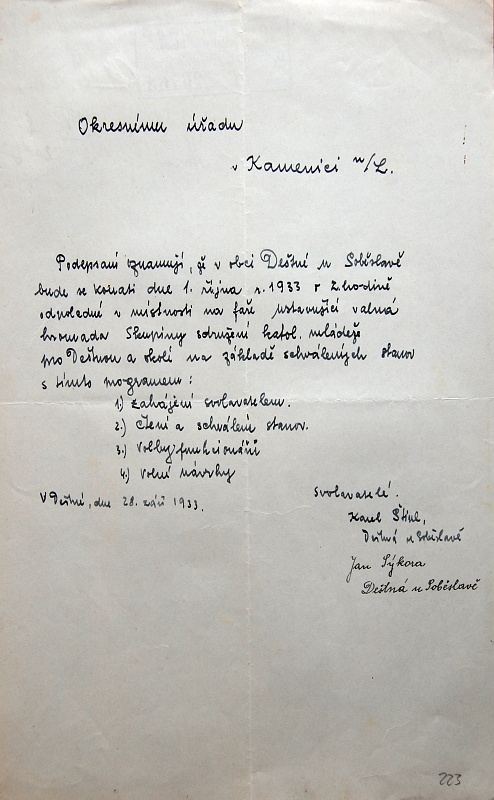 Okresnímu úřadu
v Kamenici n/L.
Podepsaní oznamují, že v obci Deštné u Soběslavě
bude se konati dne 1. října r. 1933 v 2 hodině
odpolední v místnosti na faře ustavující valná
hromada Skupiny sdružení katol. mládeže
pro Deštnou a okolí na základě schválených stanov
s tímto programem:
1.) Zahájení svolavatelem.
2.) Čtení a schválení stanov.
3.) Volby funkcionářů
4.) Volní návrhy
V Deštné, dne 28. září 1933.
Svolavatelé.
Karel
Deštná u Soběslavě
Jan Sýkora
Deštná u Soběslavě
223